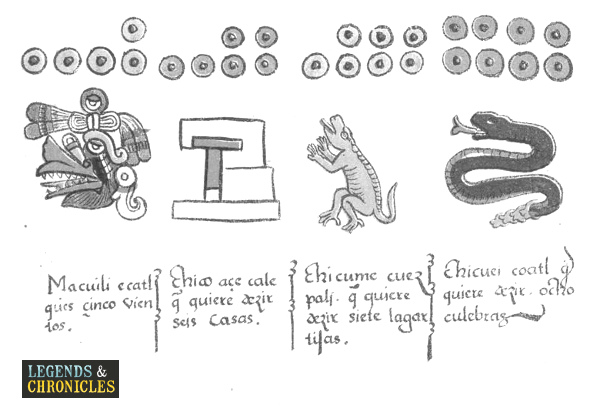 Macuili ecatl
q̃es çinco vien
tos.
Chico açe cale
q̃ quiere dezir
seis casas.
Chicume cuez
pali. q̃ quiere
dezir siete lagar
tijas.
Chicuei coatl q̃
quiere dezir. ocho
culebras
LEGENDS &
CHRONICLES